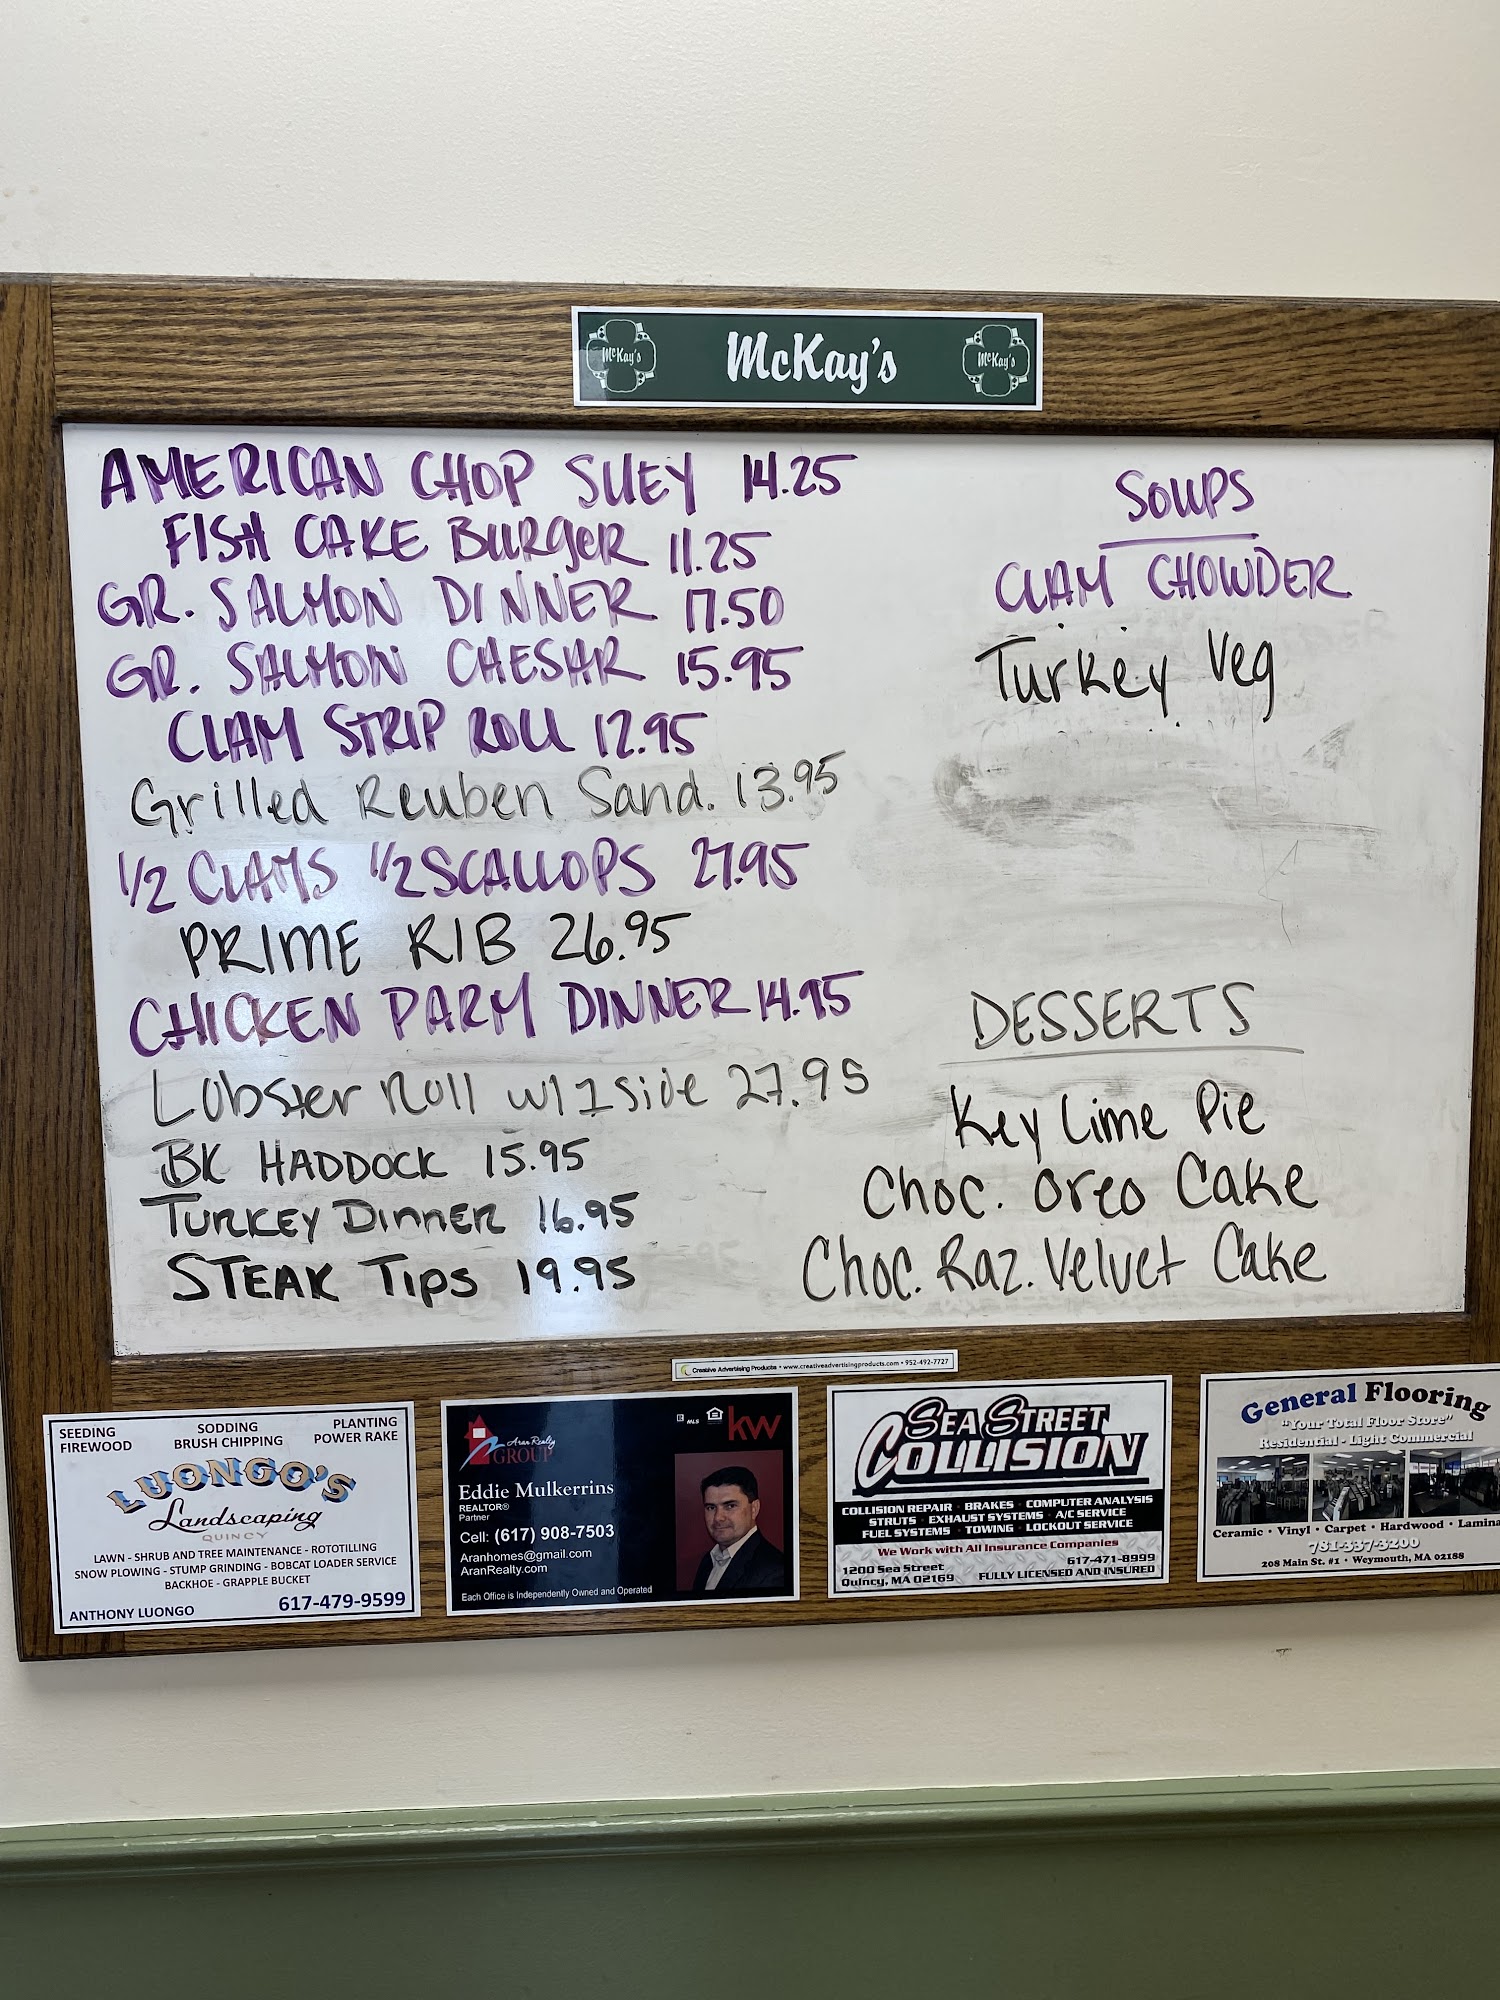 McKay's
McKay's
McKay's
AMERICAN CHOP SUEY 14.25
FISH CAKE BURGER 11.25
GR. SALMON DINNER 17.50
GR. SALMON CAESAR 15.95
CLAM STRIP ROLL 12.95
Grilled Reuben Sand. 13.95
1/2 CLAMS 1/2 SCALLOPS 27.95
PRIME RIB 26.95
CHICKEN PARM DINNER 14.95
Lobster Roll w/ 1 side 27.95
BK HADDOCK 15.95
TURKEY DINNER 16.95
STEAK TIPS 19.95
SOUPS
CLAM CHOWDER
Turkey Veg
DESSERTS
Key Lime Pie
Choc. Oreo Cake
Choc. Raz. Velvet Cake
Creative Advertising Products • www.creativeadvertisingproducts.com • 952-492-7727
SEEDING SODDING PLANTING
FIREWOOD BRUSH CHIPPING POWER RAKE
LUONGO'S
Landscaping
QUINCY
LAWN - SHRUB AND TREE MAINTENANCE - ROTOTILLING
SNOW PLOWING - STUMP GRINDING - BOBCAT LOADER SERVICE
BACKHOE - GRAPPLE BUCKET
ANTHONY LUONGO 617-479-9599
Aran Realty
GROUP
MLS
kw
Eddie Mulkerrins
REALTOR®
Partner
Cell: (617) 908-7503
Aranhomes@gmail.com
AranRealty.com
Each Office is Independently Owned and Operated
SEA STREET
COLLISION
COLLISION REPAIR · BRAKES · COMPUTER ANALYSIS
STRUTS · EXHAUST SYSTEMS · A/C SERVICE
FUEL SYSTEMS · TOWING · LOCKOUT SERVICE
We Work with All Insurance Companies
1200 Sea Street 617-471-8999
Quincy, MA 02169 FULLY LICENSED AND INSURED
General Flooring
"Your Total Floor Store"
Residential - Light Commercial
Ceramic • Vinyl • Carpet • Hardwood • Lamina
781-337-3200
208 Main St. #1 • Weymouth, MA 02188